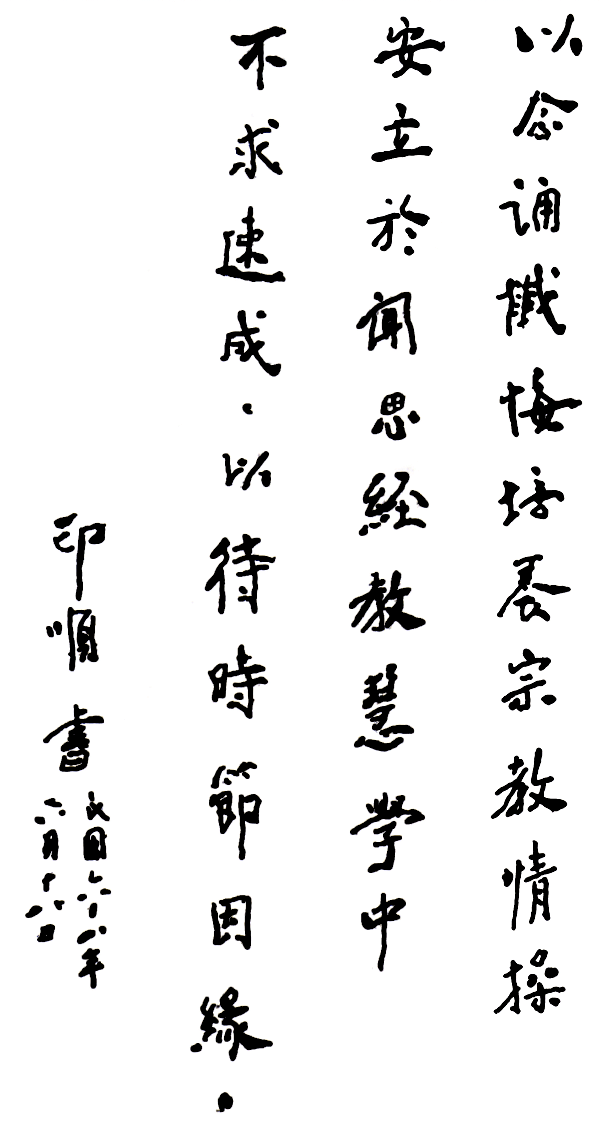 以念誦懺悔培養宗教情操
安立於聞思经教慧學中
不求速成．以待時節因緣．
印順書
民國六十八年
六月十六日